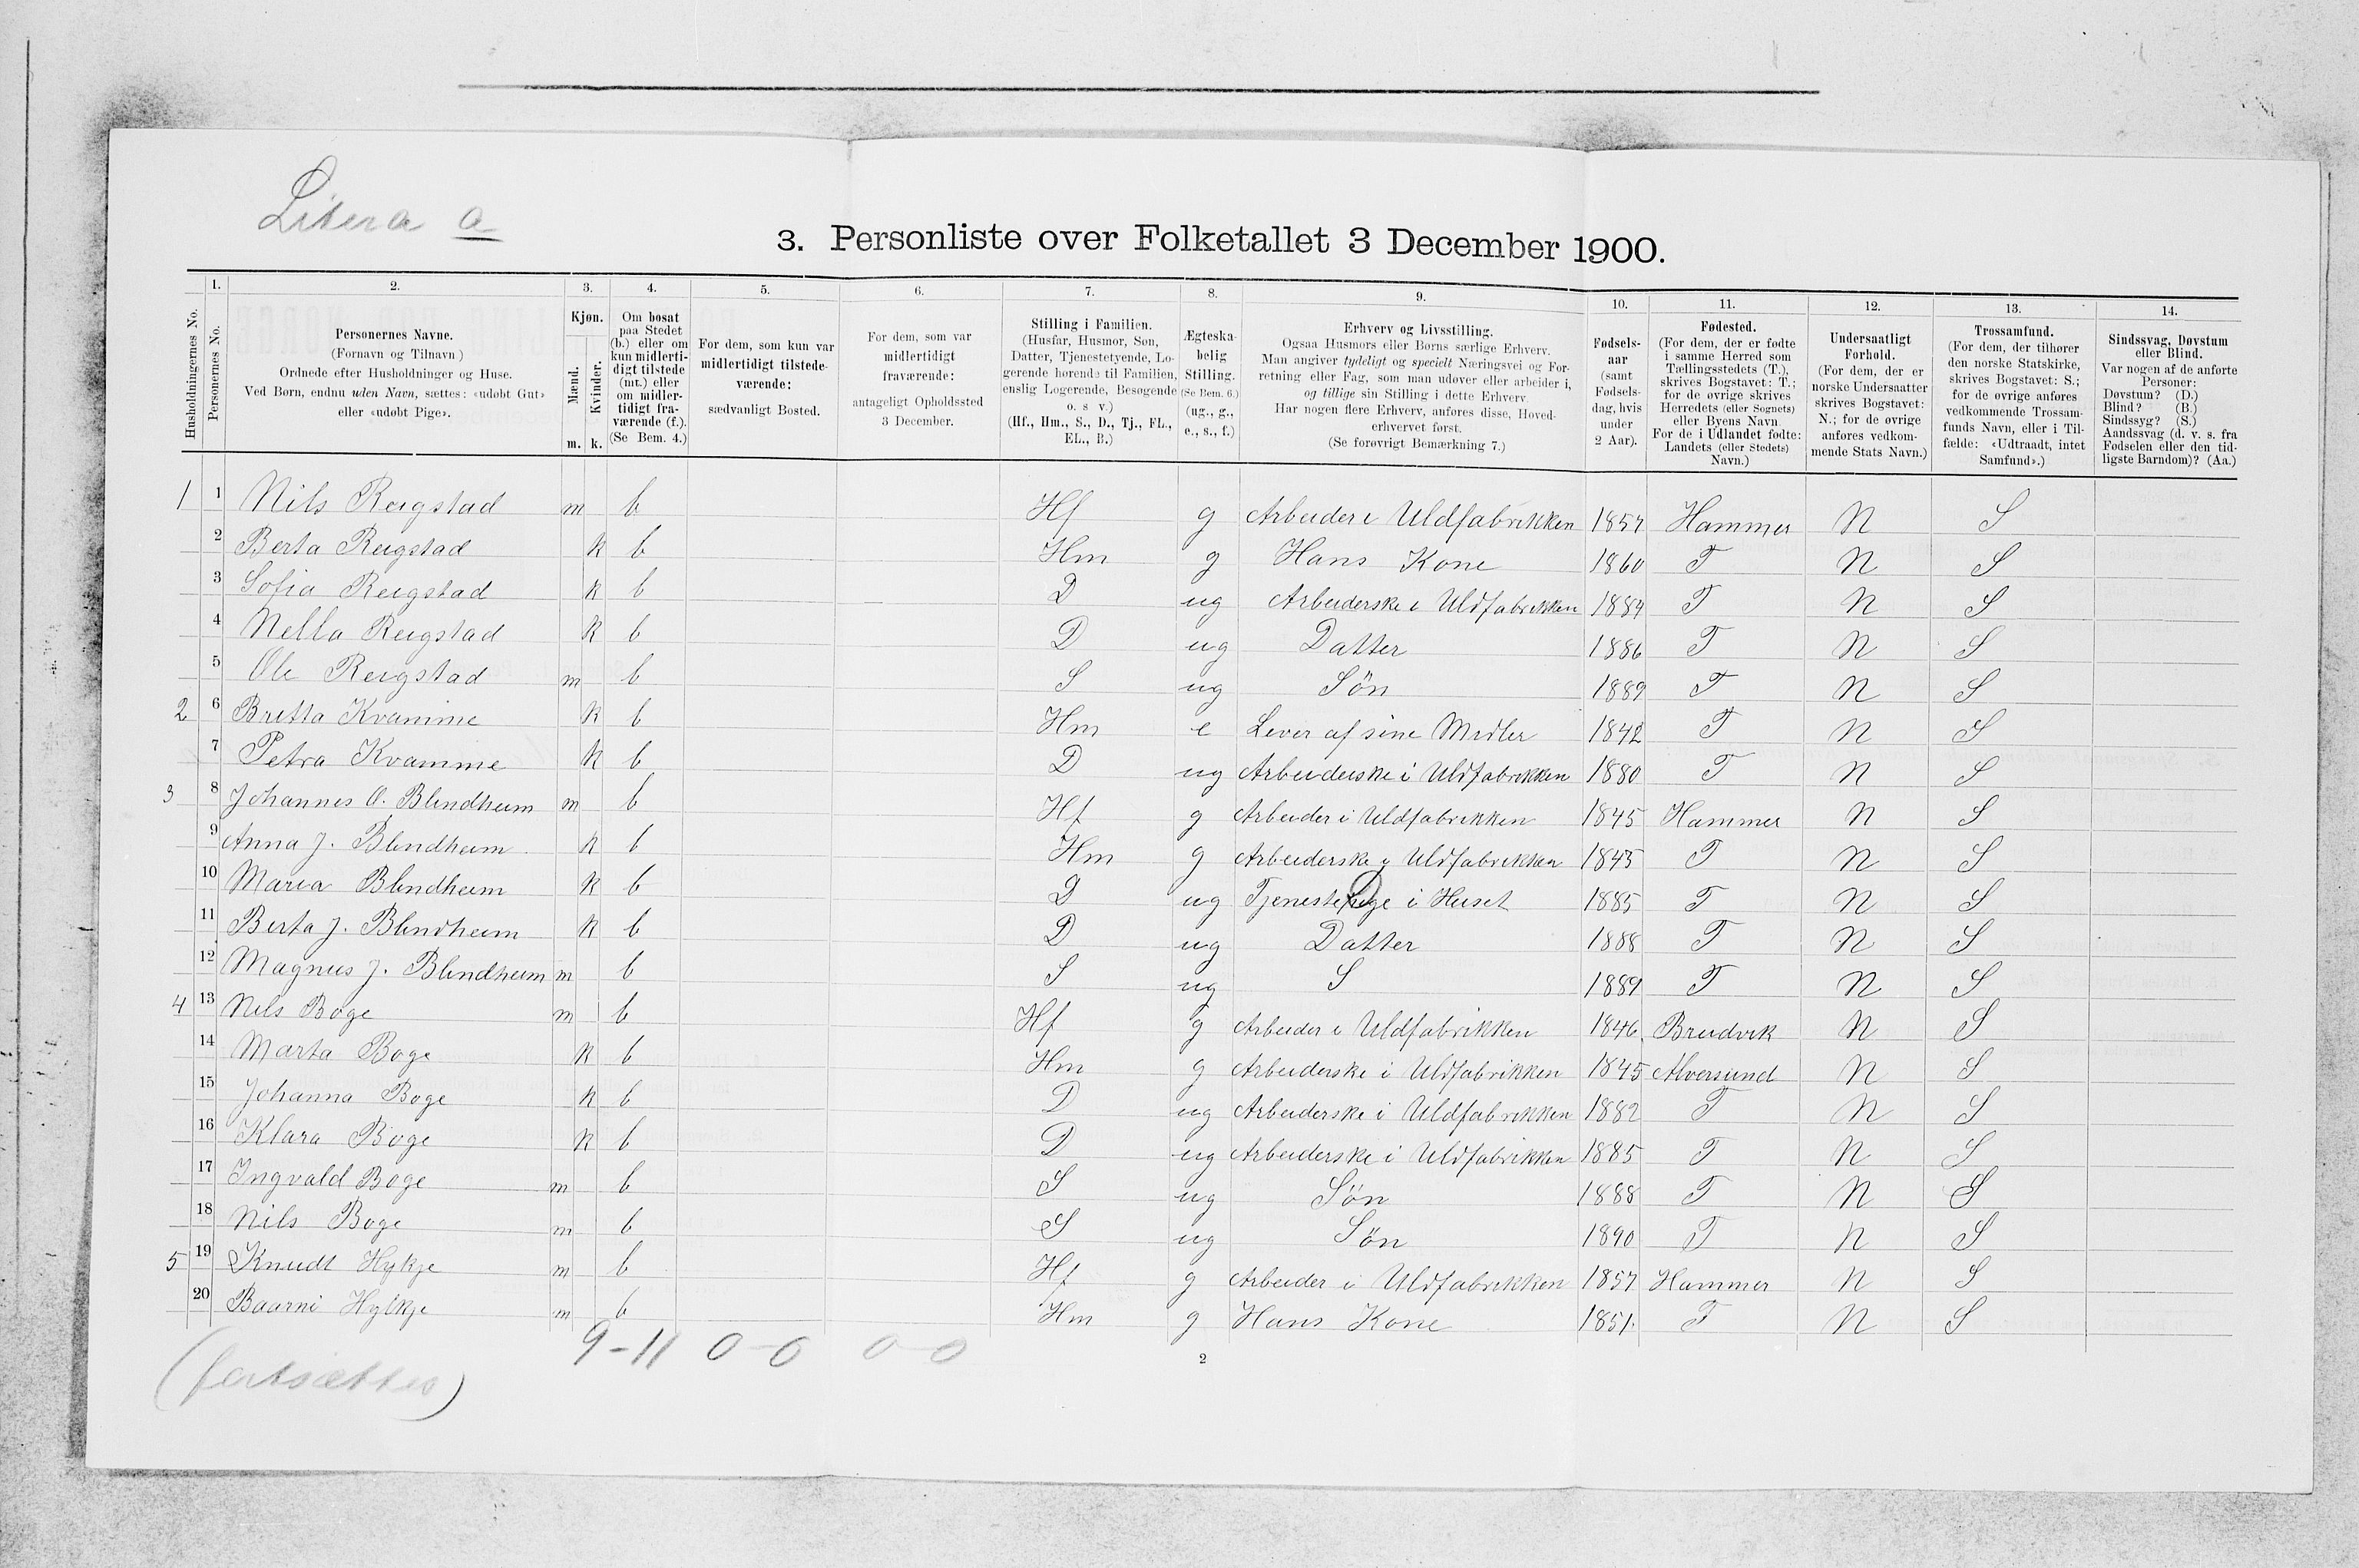 Litera a
3. Personliste over Folketallet 3 December 1900.
1. 2. 3. 4. 5. 6. 7. 8. 9. 10. 11. 12. 13. 14.
Husholdningernes No.
Personernes No.
Personernes Navne.
(Fornavn og Tilnavn)
Ordnede efter Husholdninger og Huse.
Ved Børn, endnu uden Navn, sættes: «udøbt Gut»
eller «udøbt Pige».
Kjøn.
Mænd.
Kvinder.
m. k.
Om bosat
paa Stedet
(b.) eller om
kun midlerti-
digt tilstede
(mt.) eller
om midler-
tidigt fra-
værende (f.).
(Se Bem. 4.)
For dem, som kun var
midlertidigt tilstede-
værende:
sædvanligt Bosted.
For dem, som var
midlertidigt
fraværende:
antageligt Opholdssted
3 December.
Stilling i Familien.
(Husfar, Husmor, Søn,
Datter, Tjenestetyende, Lo-
gerende hørende til Familien,
enslig Logerende, Besøgende
o. s v.)
(Hf., Hm., S., D., Tj., FL.,
EL., B.)
Ægteska-
belig
Stilling.
(Se Bem. 6.)
(ug., g.,
e., s., f.)
Erhverv og Livsstilling.
Ogsaa Husmors eller Børns særlige Erhverv.
Man angiver tydeligt og specielt Næringsvei og For-
retning eller Fag, som man udøver eller arbeider i,
og tillige sin Stilling i dette Erhverv.
Har nogen flere Erhverv, anføres disse, Hoved-
erhvervet først.
(Se forøvrigt Bemærkning 7.)
Fødsels-
aar
(samt
Fødsels-
dag, hvis
under
2 Aar).
Fødested.
(For dem, der er fødte
i samme Herred som
Tællingsstedets (T.),
skrives Bogstavet: T.;
for de øvrige skrives
Herredets (eller Sognets)
eller Byens Navn
For de i Udlandet fødte:
Landets (eller Stedets)
Navn.)
Undersaatligt
Forhold.
(For dem, der er
norske Undersaatter
skrives Bogstavet:
N.; for de øvrige
anføres vedkom-
mende Stats Navn.)
Trossamfund.
(For dem, der tilhører
den norske Statskirke,
skrives Bogstavet: S.;
for de øvrige anføres
vedkommende Trossam-
funds Navn, eller i Til-
fælde: «Udtraadt, intet
Samfund».)
Sindssvag, Døvstum
eller Blind.
Var nogen af de anførte
Personer:
Døvstum? (D.)
Blind? (B.)
Sindssyg? (S.)
Aandssvag (d. v. s. fra
Fødselen eller den tid-
ligste Barndom)? (Aa.)
1 1 Nils Reigstad m b Hf g Arbeider i Uldfabrikken 1857 Hammer N S
2 Berta Reigstad k b Hm g Hans Kone 1860 T N S
3 Sofia Reigstad k b D ug Arbeiderske i Uldfabrikken 1884 T N S
4 Nella Reigstad k b D ug Datter 1886 T N S
5 Ole Reigstad m b S ug Søn 1889 T N S
2 6 Britta Kvamme k b Hm e Lever af sine Midler 1842 T N S
7 Petra Kvamme k b D ug Arbeiderske i Uldfabrikken 1880 T N S
3 8 Johannes O. Blindheim m b Hf g Arbeider i Uldfabrikken 1845 Hammer N S
9 Anna J. Blindheim k b Hm g Arbeiderske i Uldfabrikken 1845 T N S
10 Maria Blindheim k b D ug Tjenestepige i Huset 1885 T N S
11 Berta J. Blindheim k b D ug Datter 1888 T N S
12 Magnus J. Blindheim m b S ug S 1889 T N S
4 13 Nils Boge m b Hf g Arbeider i Uldfabrikken 1846. Brudvik N S
14 Marta Boge k b Hm g Arbeiderske i Uldfabrikken 1845 Alversund N S
15 Johanna Boge k b D ug Arbeiderske i Uldfabrikken 1882 T N S
16 Klara Boge k b D ug Arbeiderske i Uldfabrikken 1885 T N S
17 Ingvald Boge m b S ug Søn 1888 T N S
18 Nils Boge m b S ug Søn 1890 T N S
5 19 Knudt Hylkje m b Hf g Arbeider i Uldfabrikken 1857 Hammer N S
20 Baarni Hylkje m b Hm g Hans Kone 1851. T N S
9-11 0-0 0-0
2
(fortsættes)